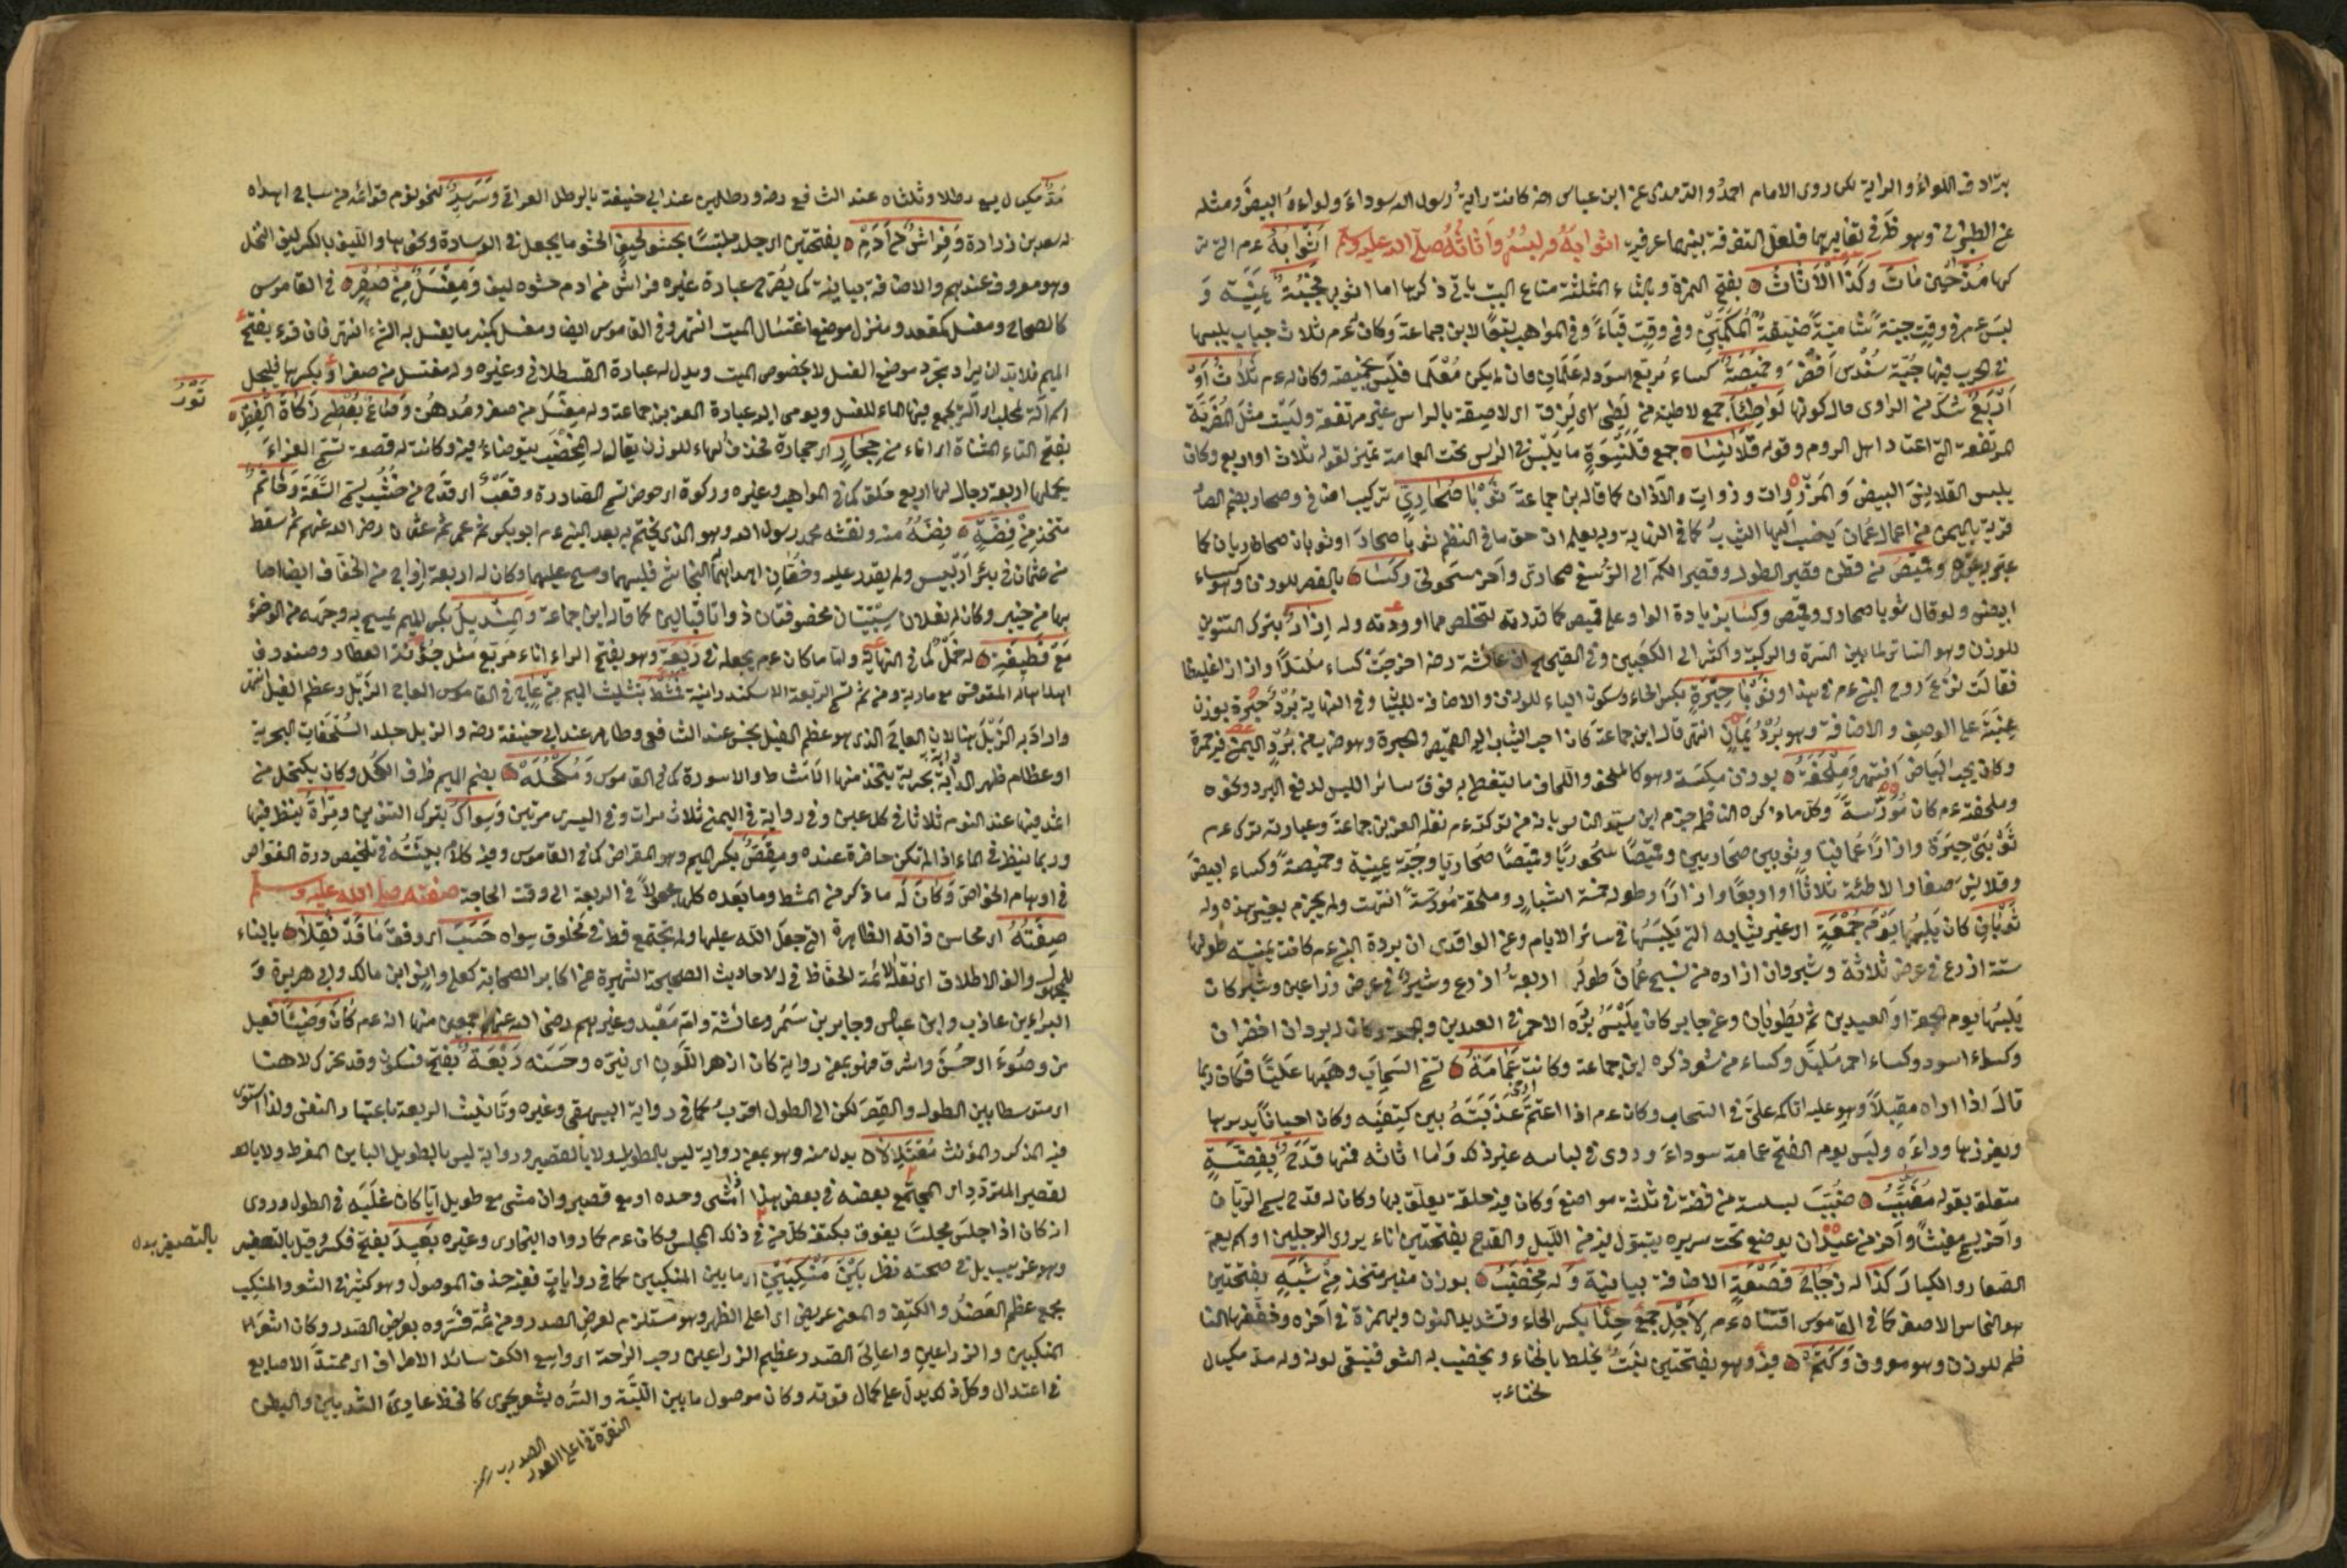 يرادف اللواء والراية لكن روى الامام احمد والترمذى عن ابن عباس رضه كانت راية رسول الله سوداء ولواءه ابيض ومثله
عن الطبرانى وهو ظ فى تغايرهما فلعل التفرقة بينهما عرفية اثوابه ولبسه واثاثه صلى الله عليه وسلم اثوابه عم التى ترك
كها مذ حين مات وكذا الاثاث بفتح الهمزة وبالثاء المثلثة متاع البيت يأتى ذكرها اما اثوابه فجبة يمنية و
لبس عم فى وقت جبة شامية ضيقة الكمين وفى وقت قباء وفى المواهب تبعا لابن جماعة وكان له عم ثلاث جباب يلبسها
فى الحرب فيها جبة سندس اخضر وخميصة كساء مربع اسود له علمان وان لم يكن معلما فليس بخميصة وكان له عم ثلاث او
اربع شك من الراوى حال كونها لواطئ جمع لاطية من لطى اى لزق اى لاصقة بالراس غير مرتفعة وليست مثل المضربة
المرتفعة التى اعتاد اهل الروم وقوله قلانسا جمع قلنسوة ما يلبس فى الراس تحت العمامة تمييز لقوله ثلاث او اربع وكان
يلبس القلانس البيض والمزرورات وذوات والآذان كما قاله ابن جماعة ثوبا صحارى تركيب اضافى وصحار بضم الصاد
قرية باليمن من اعمال عمان ينسب اليها الثياب كما فى النهاية وبه يعلم ان حق ما فى النظم ثوبا صحار او ثوبان صحاريان كما
عبر به غيره وقميص من قطن قصير الطول وقصير الكم الى الرسغ صحارى وآخر سحولى وكسا بالقصر للوزن وهو كساء
ابيض ولو قال ثوبا صحار وقميص وكسا بزيادة الواو على قميص كما قدرته لتخلص مما اوردته وله ازار بترك التنوين
للوزن وهو الساتر لما بين السرة والركبة واكثر الى الكعبين وفى الصحيح ان عائشة رضه اخرجت كساء ملبدا وازارا غليظا
فقالت نزع روح النبى عم فى هذا وثوبا حبرة بكسر الحاء وسكون الياء للوزن والاضافة للبيان وفى النهاية برد حبرة بوزن
عنبة على الوصف والاضافة وهو برد يمان انتهى قال ابن جماعة كان احب الثياب اليه القميص والحبرة وهو ضرب من برد اليمن فيه حمرة
وكان يحب البياض انتهى وملحفة بوزن مكنسة وهو كالملحف واللحاف ما يتغطى به فوق سائر اللبس لدفع البرد ونحوه
وملحفته عم كان مورسة وكل ما ذكره الناظم جزم ابن سيد الناس بانه من تركته عم نقله العز بن جماعة وعبارته ترك عم
ثوبى حبرة وازارا عمانيا وثوبين صحاريين وقميصا سحوريا وقميصا صحاريا وجبة يمنية وخميصة وكساء ابيض
وقلانس صغارا لاطئة ثلاثا او اربعا وازارا وطوله خمسة اشبار وملحفة مورسة انتهت ولم يجزم بغير هذه وله
ثوبان كان يلبسها يوم جمعة اى غير ثيابه التى يلبسها فى سائر الايام وعن الواقدى ان بردة النبى عم كانت يمنية طولها
ستة اذرع فى عرض ثلاثة وشبر وان ازاره من نسج عمان طوله اربعة اذرع وشبر فى عرض ذراعين وشبر كان
يلبسها يوم الجمعة او العيدين ثم يطويان وعن جابر كان يلبس برده الاحمر فى العيدين والجمعة وكان له بردان اخضران
وكساء اسود وكساء احمر ملبد وكساء من شعر ذكره ابن جماعة وكانت عمامة تسمى السحاب وهبها عليا فكان ربما
قال اذا رآه مقبلا وهو عليه اتاكم على فى السحاب وكان عم اذا اعتم ارخى عذبته بين كتفيه وكان احيانا يديرها
ويغرزها وراءه ولبس يوم الفتح عمامة سوداء وروى فى لباسه غير ذلك واما اثاثه فمنها قدح بفضة
متعلق بقوله مضبب ضبب بسلسة من فضة فى ثلثة مواضع وكان فيه حلقة يعلق بها وكان له قدح يسمى الريان
وآخر يسمى مغيثا وآخر من عيدان يوضع تحت سريره يتبول فيه من الليل والقدح بفتحتين اناء يروى الرجلين او اسم يعم
الصغار والكبار كذا له زجاجى قصعة الاضافة بيانية وله مخضب بوزن منبر متخذ من شبه بفتحتين
هو النحاس الاصفر كما فى القاموس اقتناه عم لاجل جمع حنا بكسر الحاء وتشديد النون وبالهمزة فى آخره وخففها النا
ظم للوزن وهو معروف وكتم فيه وهو بفتحتين نبت يخلط بالحناء ويخضب به الشعر فيبقى لونه وله مد مكيال
لحناء ب
مد مكيال يسع رطلا وثلثاه عند الشافعى رضه ورطلين عند ابى حنيفة بالرطل العراقى وسرير لنحو نوم قوائمه من ساج اهداه
له سعد بن زرارة وفراش من ادم بفتحتين اى جلد ملتبسا بحشو ليف الحشو ما يجعل فى الوسادة ونحوها والليف بالكسر ليف النخل
وهو معروف عندهم والاضافة بيانية كما يصرح عبارة غيره فراش من ادم حشوه ليف ومغسل من صفر فى القاموس
كالصحاح ومغسل كمقعد ومنزل موضع اغتسال الميت انتهى وفى القاموس ايضا ومغسل كمنبر ما يغسل به الشئ انتهى فان قرء بفتح
الميم فلا بد ان يراد مجرد موضع الغسل لا بخصوص الميت ويدل له عبارة القسطلانى وغيره وله مغتسل من صفر او بكسرها فليحمل
اسم آلة لمحل او آلة يجمع فيها الماء للغسل ويومى اليه عبارة العز بن جماعة وله مغسل من صفر ومدهن وصاع يعطى زكاة الفطر
تور
بفتح التاء المثناة اى اناء من حجار اى حجارة فحذف الهاء للوزن يقال له المخضب يتوضاء فيه وكانت له قصعة تسمى الغراء
يحملها اربعة رجال لها اربع حلق كما فى المواهب وغيره وركوة اى حوض تسمى الصادرة وقعب اى قدح من خشب يسمى السعة وخاتم
متخذ من فضة فصه منه ونقشه محمد رسول الله وهو الذى يختم به بعد النبى عم ابو بكر ثم عمر ثم عثمان رضى الله عنهم ثم سقط
من عثمان فى بئر اريس ولم يقدر عليه وخفان اهداهما النجاشى فلبسهما ومسح عليهما وكان له اربعة ازواج من الخفاف ايضا اصا
بها من خيبر وكان له نعلان سبتيتان مخصوفتان ذواتا قبالين كما قال ابن جماعة والمنديل بكسر الميم يمسح به وجهه من الوضوء
مع قطيفة له خمل كما فى النهاية واما ما كان عم يجعله فى ربعة وهو بفتح الراء اناء مربع مثل جؤنة العطار وصندوق
اهداها له المقوقس مع مارية ومن ثم تسمى الربعة الاسكندرانية فمشط بتثليث الميم من عاج فى القاموس العاج الذبل وعظم الفيل انتهى
واراد به الذبل هنا لان العاج الذى هو عظم الفيل نجس عند الشافعى وطاهر عند ابى حنيفة رضه والذبل جلد السلحفات البحرية
او عظام ظهر الدابة بحرية يتخذ منها الامشاط والاسورة كما فى القاموس ومكحلة بضم الميم ظرف الكحل وكان يكتحل من
اثمد فيها عند النوم ثلاثا فى كل عين وفى رواية فى اليمنى ثلاث مرات وفى اليسرى مرتين وسواك بترك التنوين ومرآة ينظر فيها
وربما ينظر فى الماء اذا لم تكن حاضرة عنده ومقص بكسر الميم وهو المقراض كما فى القاموس وفيه كلام بينته فى تلخيص درة الغواص
فى اوهام الخواص وكان له ما ذكر من المشط وما بعده كلها محمولا فى الربعة الى وقت الحاجة صفته صلى الله عليه وسلم
صفته اى محاسن ذاته الظاهرة التى جعل الله عليها ولم يجتمع قط فى مخلوق سواه حسب اى وفق ما قد نقلا بالبناء
للمجهول والف الاطلاق اى نقله الائمة الحفاظ فى الاحاديث الصحيحة الشهيرة عن اكابر الصحابة كعلى وانس ابن مالك وابى هريرة و
البراء بن عازب وابن عباس وجابر بن سمر وعائشة وام معبد وغيرهم رضى الله عنهم اجمعين منها انه عم كان وضيئا فعيل
من وضوء اى حسن واشرق فهو بمعنى رواية كان ازهر اللون اى نيره وحسنه ربعة بفتح فسكون وقد تحرك لا هنا
اى متوسطا بين الطول والقصر لكن الى الطول اقرب كما فى رواية البيهقى وغيره وتانيث الربعة باعتبار النفس ولذا استوى
فيه المذكر والمؤنث معتدلا بدل منه وهو بمعنى رواية ليس بالطويل ولا بالقصير ورواية ليس بالطويل البائن المفرط ولا بالا
لقصير المتردد اى المجتمع بعضه فى بعض هذا اذا مشى وحده او مع قصير وان مشى مع طويل اياً كان غلبه فى الطول وروى
انه كان اذا جلس مجلسا يفوق بكتفه كل من فى ذلك المجلس وكان عم كما رواه البخارى وغيره بعيد بفتح فكسر وقيل بالتصغير
بالتصغير بدل
وهو غريب بل فى صحته نظر بين منكبين اى ما بين المنكبين كما فى روايات ففيه حذف الموصول وهو كثير فى الشعر والمنكب
مجمع عظم العضد والكتف والمعنى عريض اى اعلى الظهر وهو مستلزم لعرض الصدر ومن ثمة فسروه بعريض الصدر وكان اشعر
المنكبين والذراعين واعالى الصدر عظيم الذراعين رحب الراحة اى واسع الكف سائل الاطراف اى ممتد الاصابع
فى اعتدال وكل ذلك يدل على كمال قوته وكان موصول ما بين اللبة والسره بشعر يجرى كالخط عارى الثديين والبطن
النقرة فى اعلى الصدر